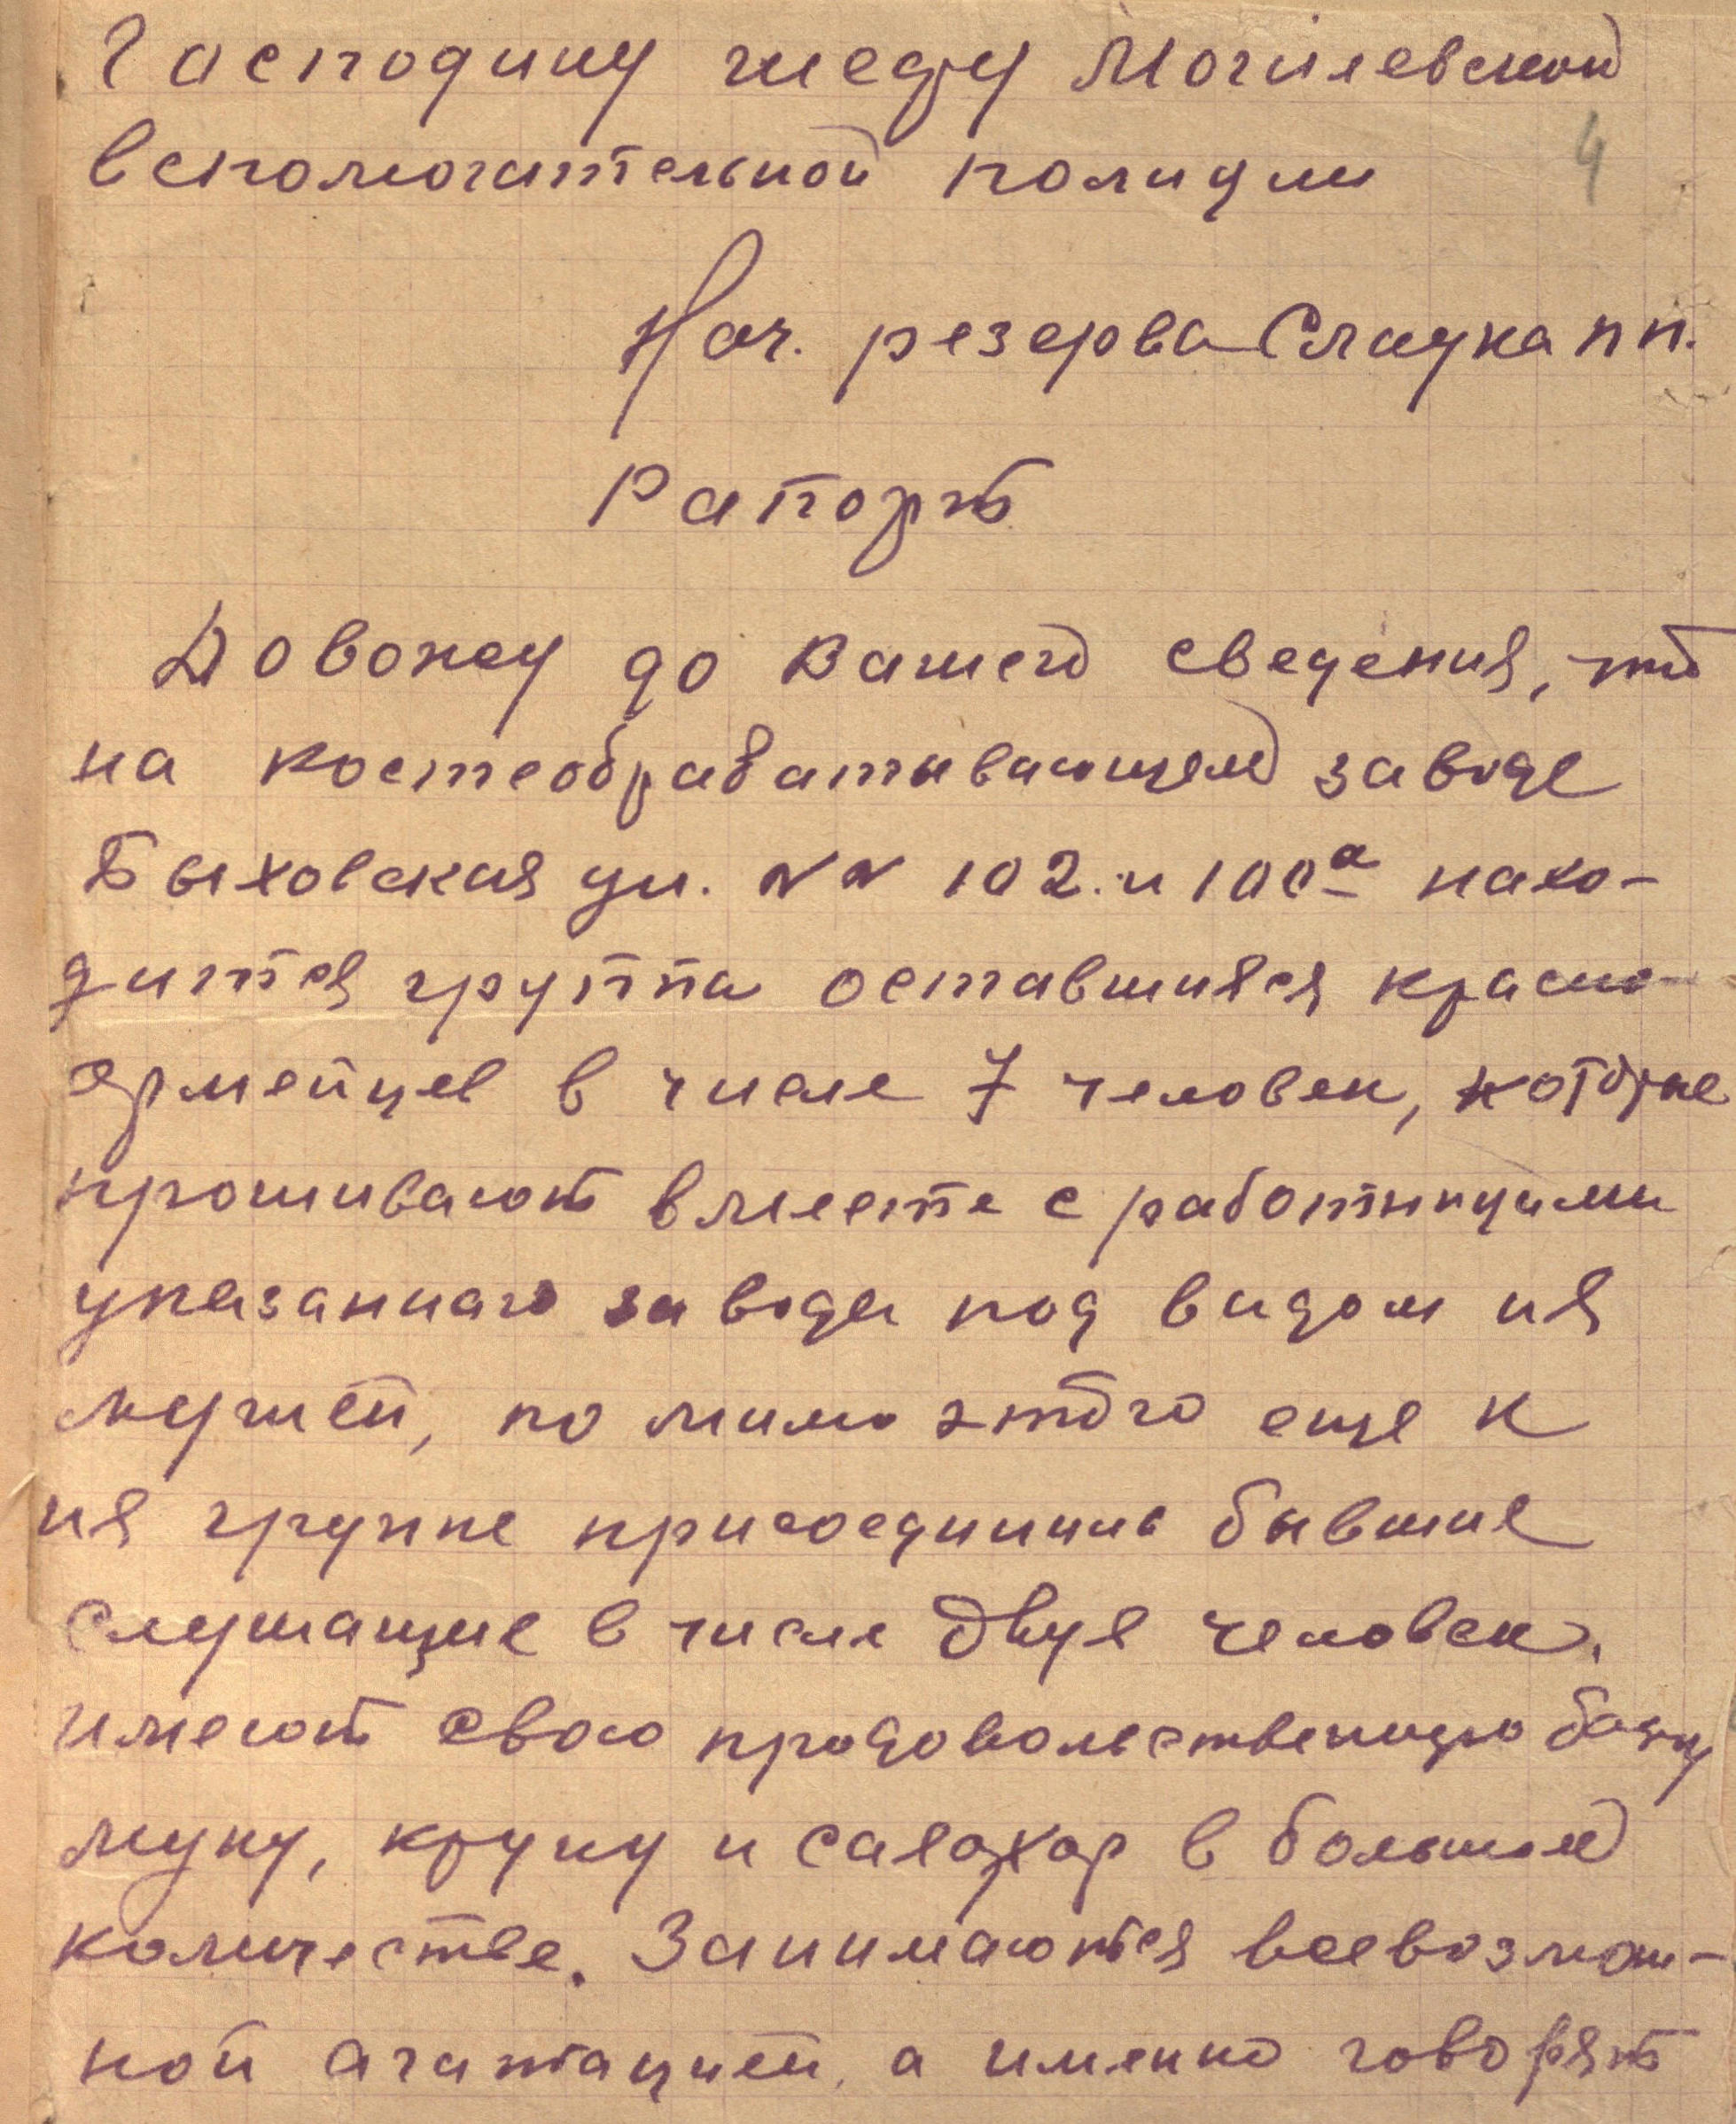 Господину шефу Могилевской
вспомогательной полиции
4
Нач. резерва пп.
Рапорт
Довожу до Вашего сведения, что
на костеобрабатывающем заводе
Быховская ул. NN 102 и 100а нахо-
дится группа оставшихся красно-
армейцев в числе 7 человек, которые
проживают вместе с работницами
указаннаго завода под видом их
мужей, по мимо этого еще к
их группе присоединились бывшие
служащие в числе двух человек.
имеют свою продовольственную базу
муку, крупу и сахар в большом
количестве. Занимаются всевозмож-
ной агитацией, а именно говорят